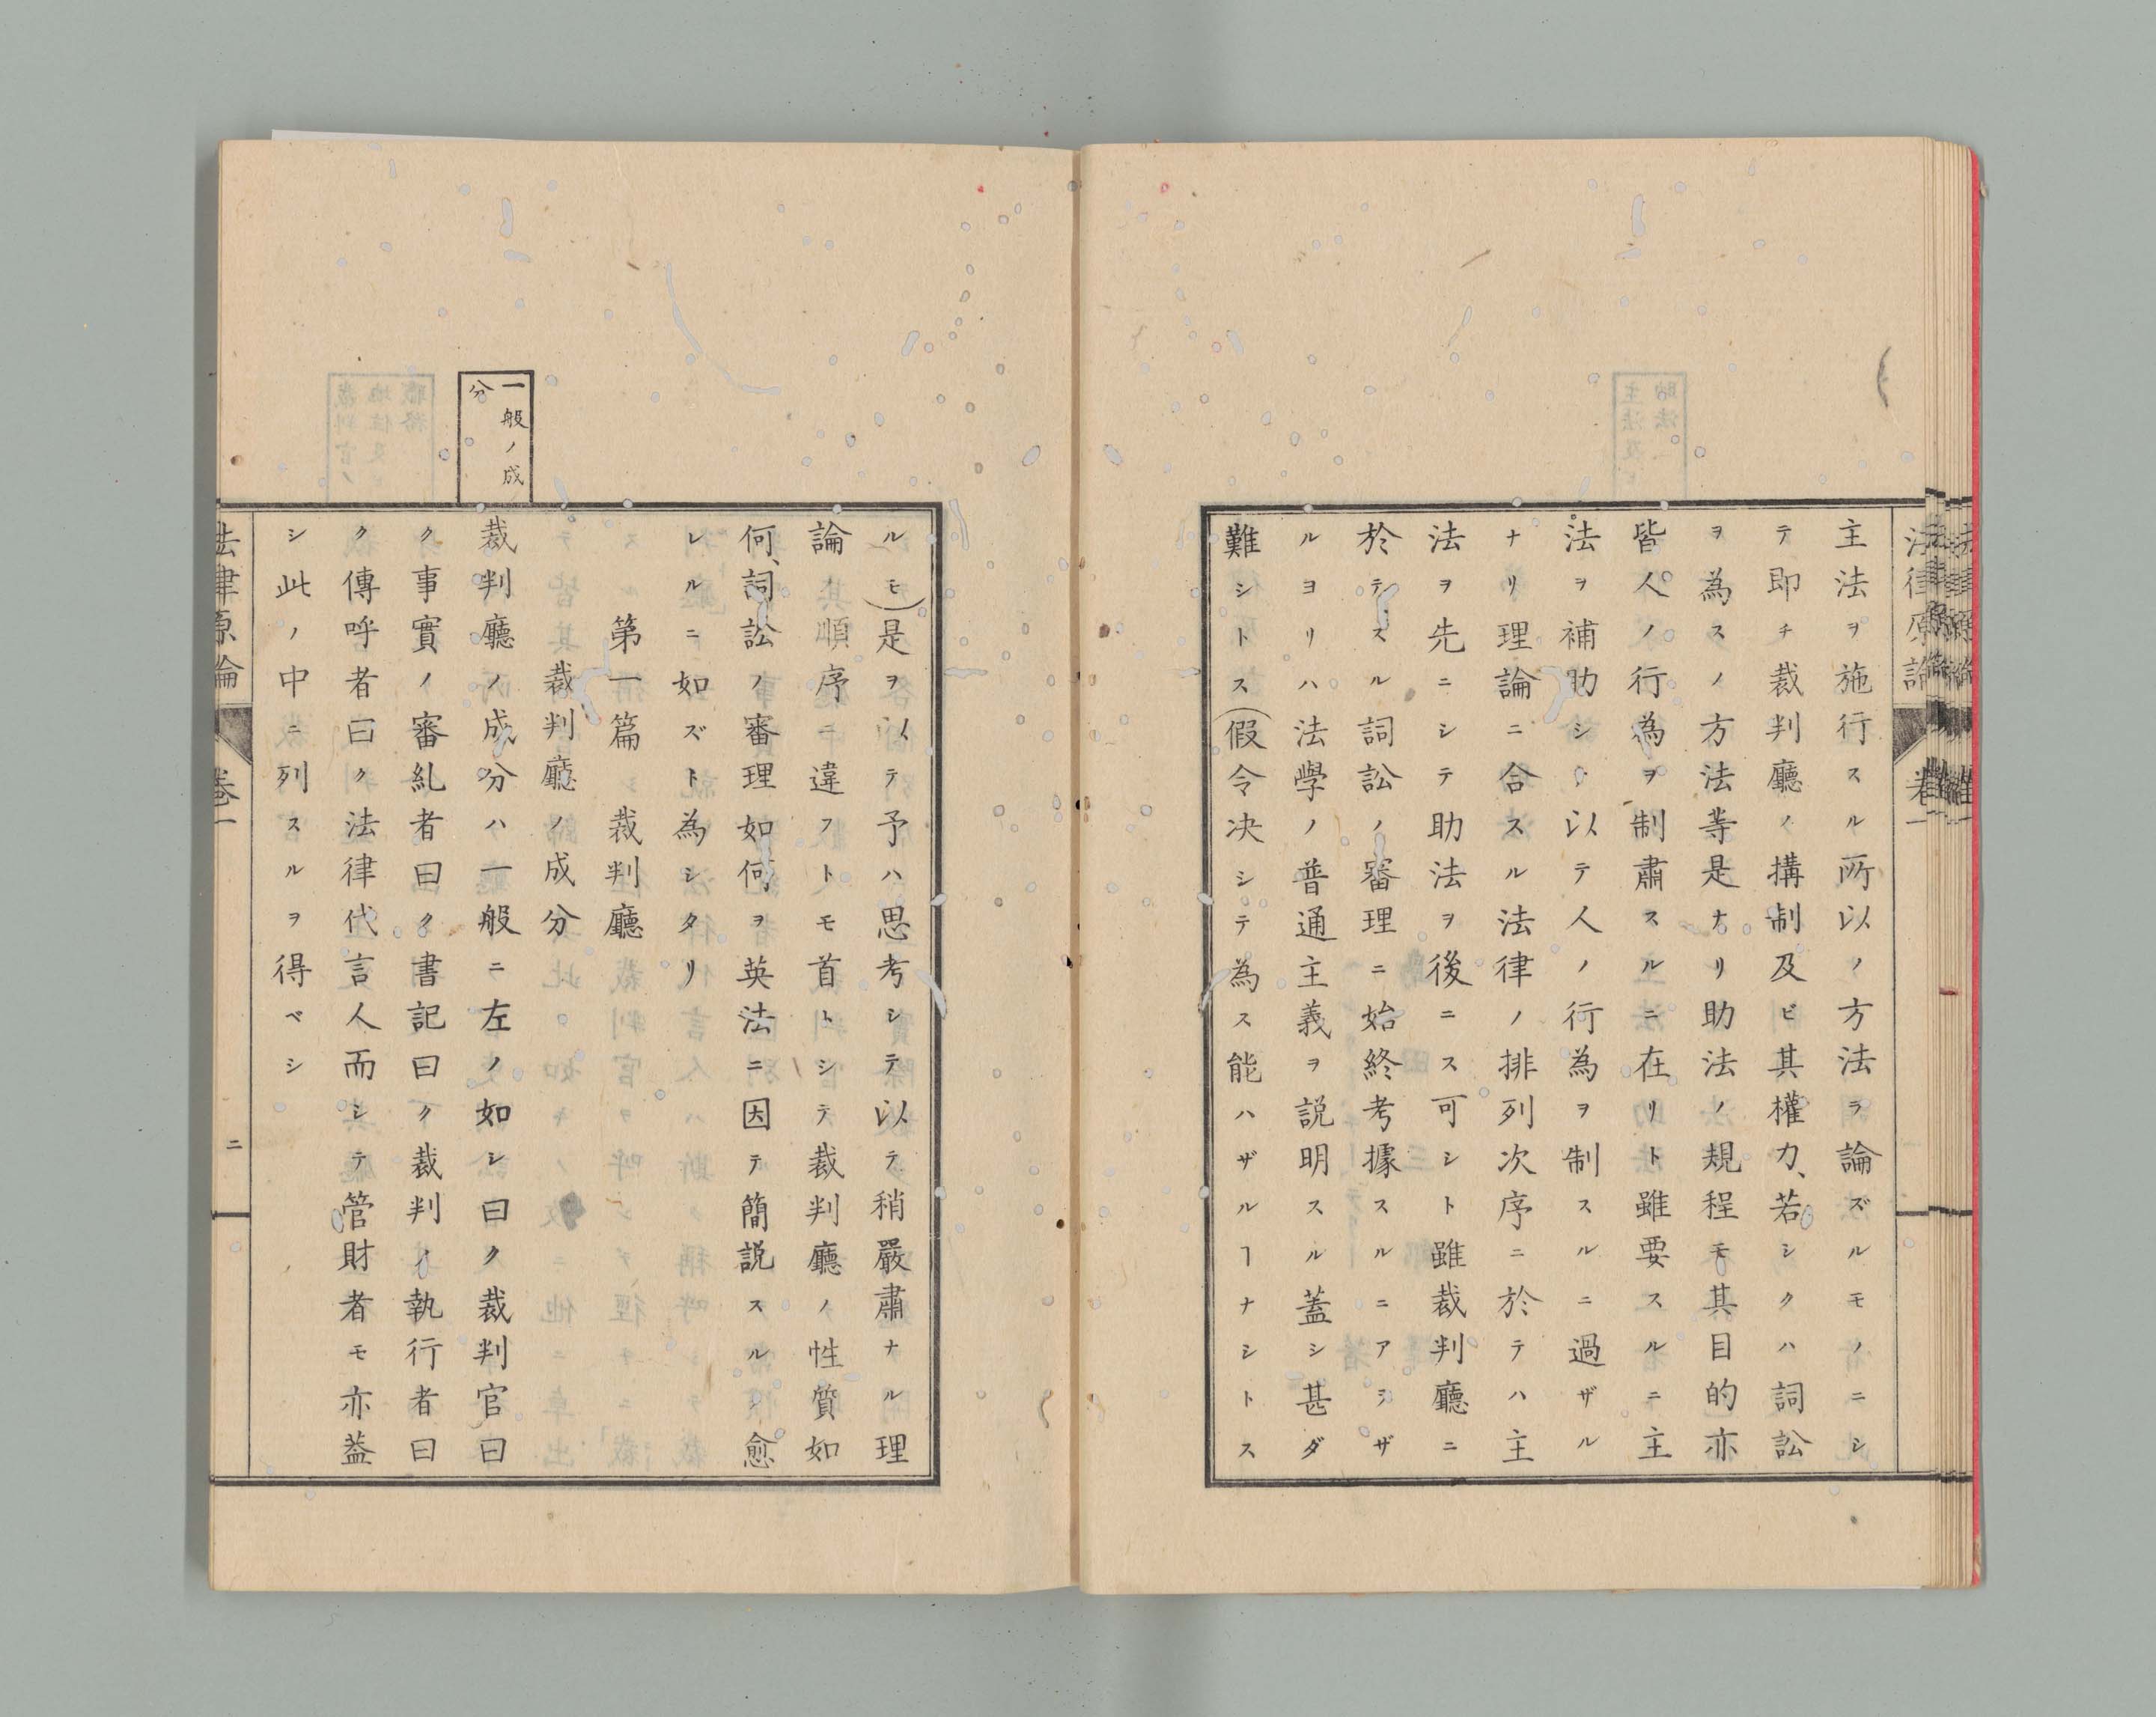 主法ヲ施行スル所以ノ方法ヲ論ズルモノニシ
テ即チ裁判廳ノ搆制及ビ其權力、若シクハ詞訟
ヲ為スノ方法等是ナリ助法ノ規程モ其目的亦
皆人ノ行為ヲ制肅スルニ在リト雖要スルニ主
法ヲ補助シ以テ人ノ行為ヲ制スルニ過ザル
ナリ理論ニ合スル法律ノ排列次序ニ於テハ主
法ヲ先ニシテ助法ヲ後ニス可シト雖裁判廳ニ
於テスル詞訟ノ審理ニ始終考據スルニアラザ
ルヨリハ法學ノ普通主義ヲ説明スル蓋シ甚ダ
難シトス(假令决シテ為ス能ハザルヿナシトス
ルモ)是ヲ以テ予ハ思考シテ以テ稍嚴肅ナル理
論其順序ニ違フトモ首トシテ裁判廳ノ性質如
何、詞訟ノ審理如何ヲ英法ニ因テ簡説スル愈
レルニ如ズト為シタリ
第一篇 裁判廳
裁判廳ノ成分
一般ノ成
分
裁判廳ノ成分ハ一般ニ左ノ如シ曰ク裁判官曰
ク事實ノ審糺者曰ク書記曰ク裁判ノ執行者曰
ク傳呼者曰ク法律代言人而シテ管財者モ亦葢
シ此ノ中ニ列スルヲ得ベシ
法律原論 卷一 二